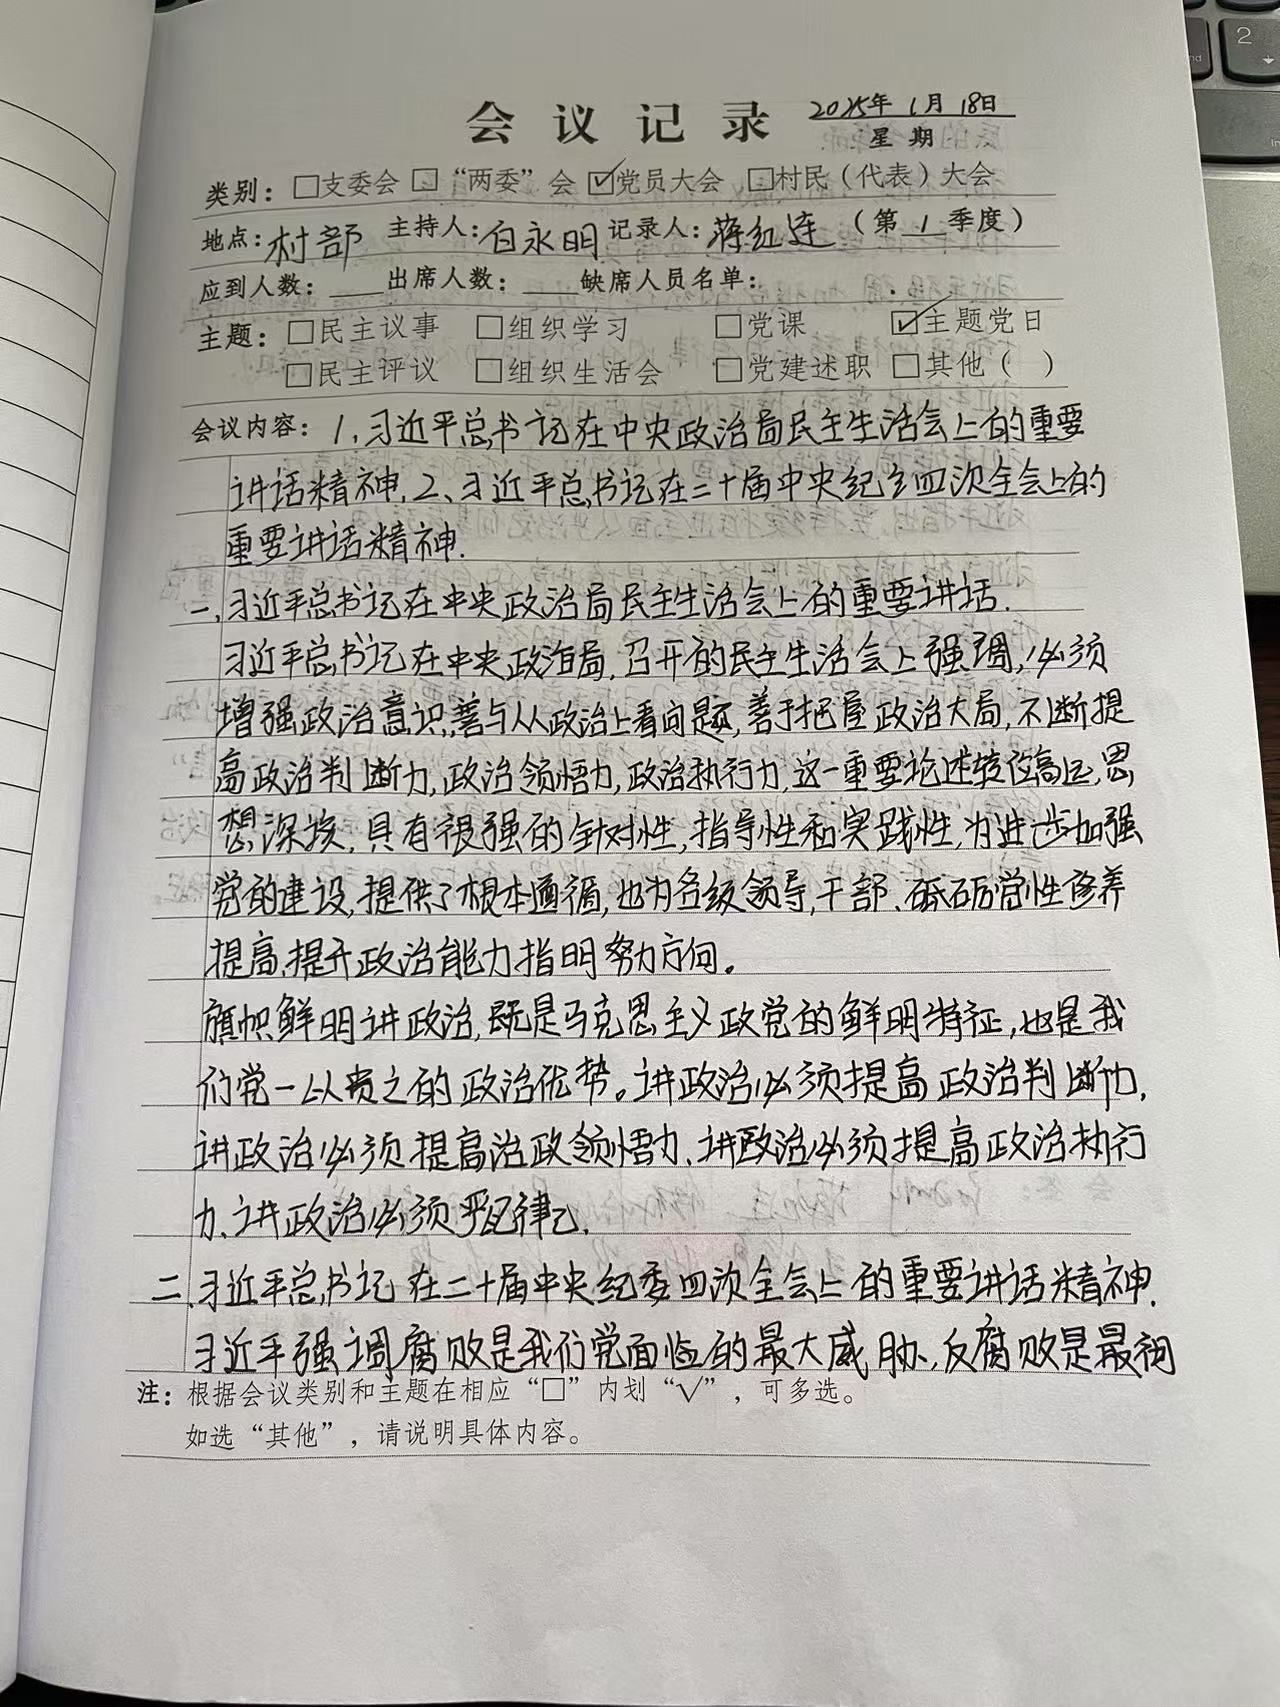 会议记录 2025年1月18日
星期
类别：□支委会 □“两委”会 ☑党员大会 □村民（代表）大会
地点：村部 主持人：白永明 记录人：蒋红连 （第1季度）
应到人数：____ 出席人数：____ 缺席人员名单：
主题：□民主议事 □组织学习 □党课 ☑主题党日
□民主评议 □组织生活会 □党建述职 □其他（ ）
会议内容：1、习近平总书记在中央政治局民主生活会上的重要
讲话精神.2、习近平总书记在二十届中央纪委四次全会上的
重要讲话精神.
一、习近平总书记在中央政治局民主生活会上的重要讲话.
习近平总书记在中央政治局.召开的民主生活会上强调,必须
增强政治意识,善与从政治上看问题,善于把握政治大局,不断提
高政治判断力,政治领悟力,政治执行力,这一重要论述较位高远,思
想深埃,具有很强的针对性,指导性和实践性,为进步加强
党的建设,提供了根本遵循,也为各级领导,干部、砥砺党性修养
提高,提升政治能力指明努力方向。
旗帜鲜明讲政治,既是马克思主义政党的鲜明特征,也是我
们党一以贯之的政治优势。讲政治必须提高政治判断力,
讲政治必须提高治政领悟力、讲政治必须提高政治执行
力、讲政治必须严纪律己.
二、习近平总书记在二十届中央纪委四次全会上的重要讲话精神.
习近平强调腐败是我们党面临的最大威胁,反腐败是最彻
注：根据会议类别和主题在相应“□”内划“√”，可多选。
如选“其他”，请说明具体内容。